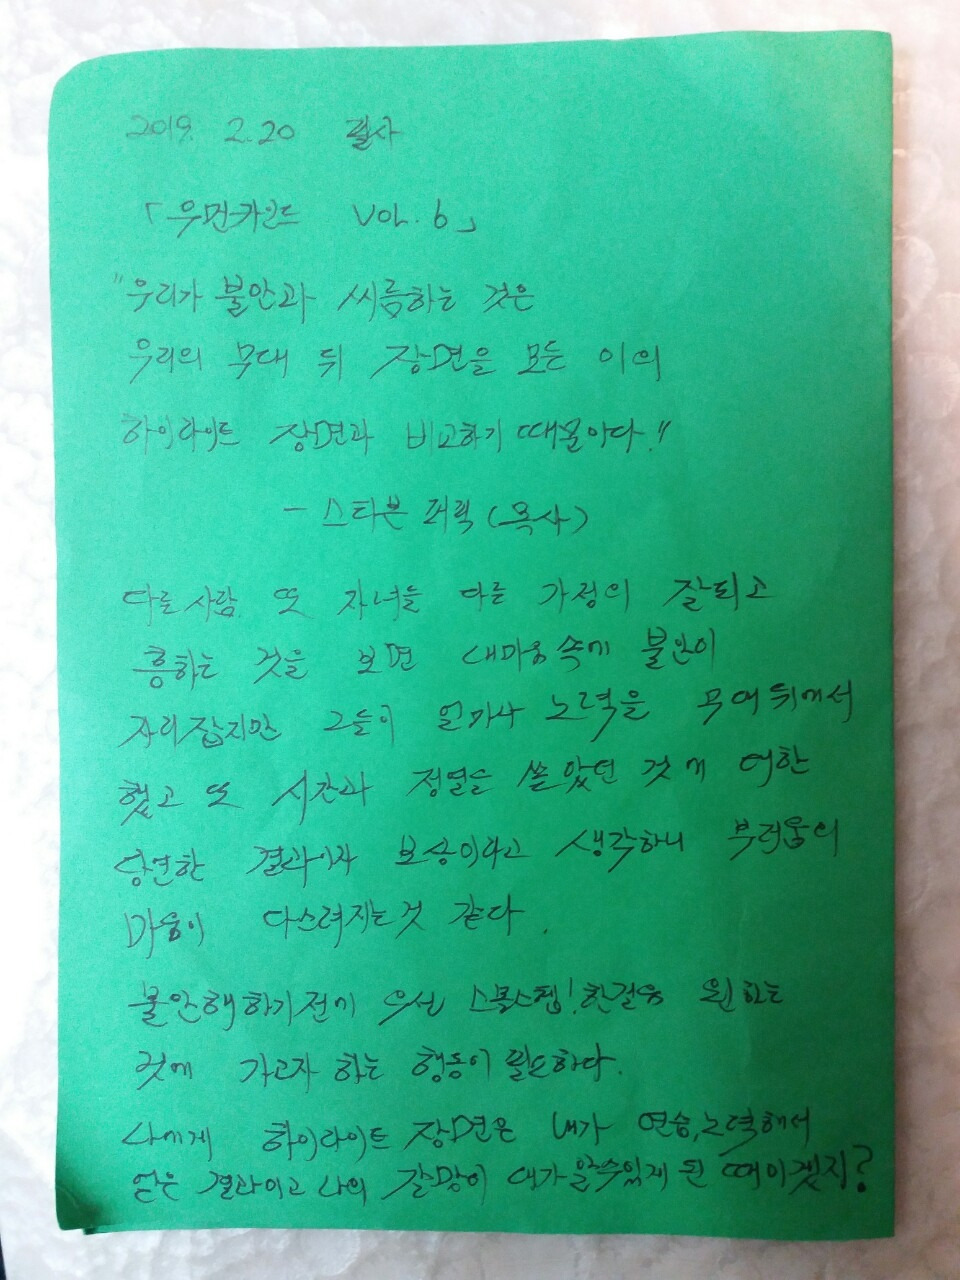 2019. 2.20 필사
「우먼카인드 VOL. 6」
"우리가 불안과 씨름하는 것은
우리의 무대 뒤 장면을 모든 이의
하이라이트 장면과 비교하기 때문이다."
- 스티븐 퍼틱 (목사)
다른사람 또 자녀들 다른 가정의 잘되고
흥하는 것을 보면 내마음속에 불안이
자리잡지만 그들이 얼마나 노력을 무대뒤에서
했고 또 시간과 정열을 쏟았던 것에 대한
당연한 결과이자 보상이라고 생각하니 부러움의
마음이 다스려지는것 같다.
불안해하기전에 우선 스몰스텝! 한걸음 원하는
것에 가고자 하는 행동이 필요하다.
나에게 하이라이트 장면은 내가 연습, 노력해서
얻은 결과이고 나의 갈망이 대가 될수있게 된 때이겠지?